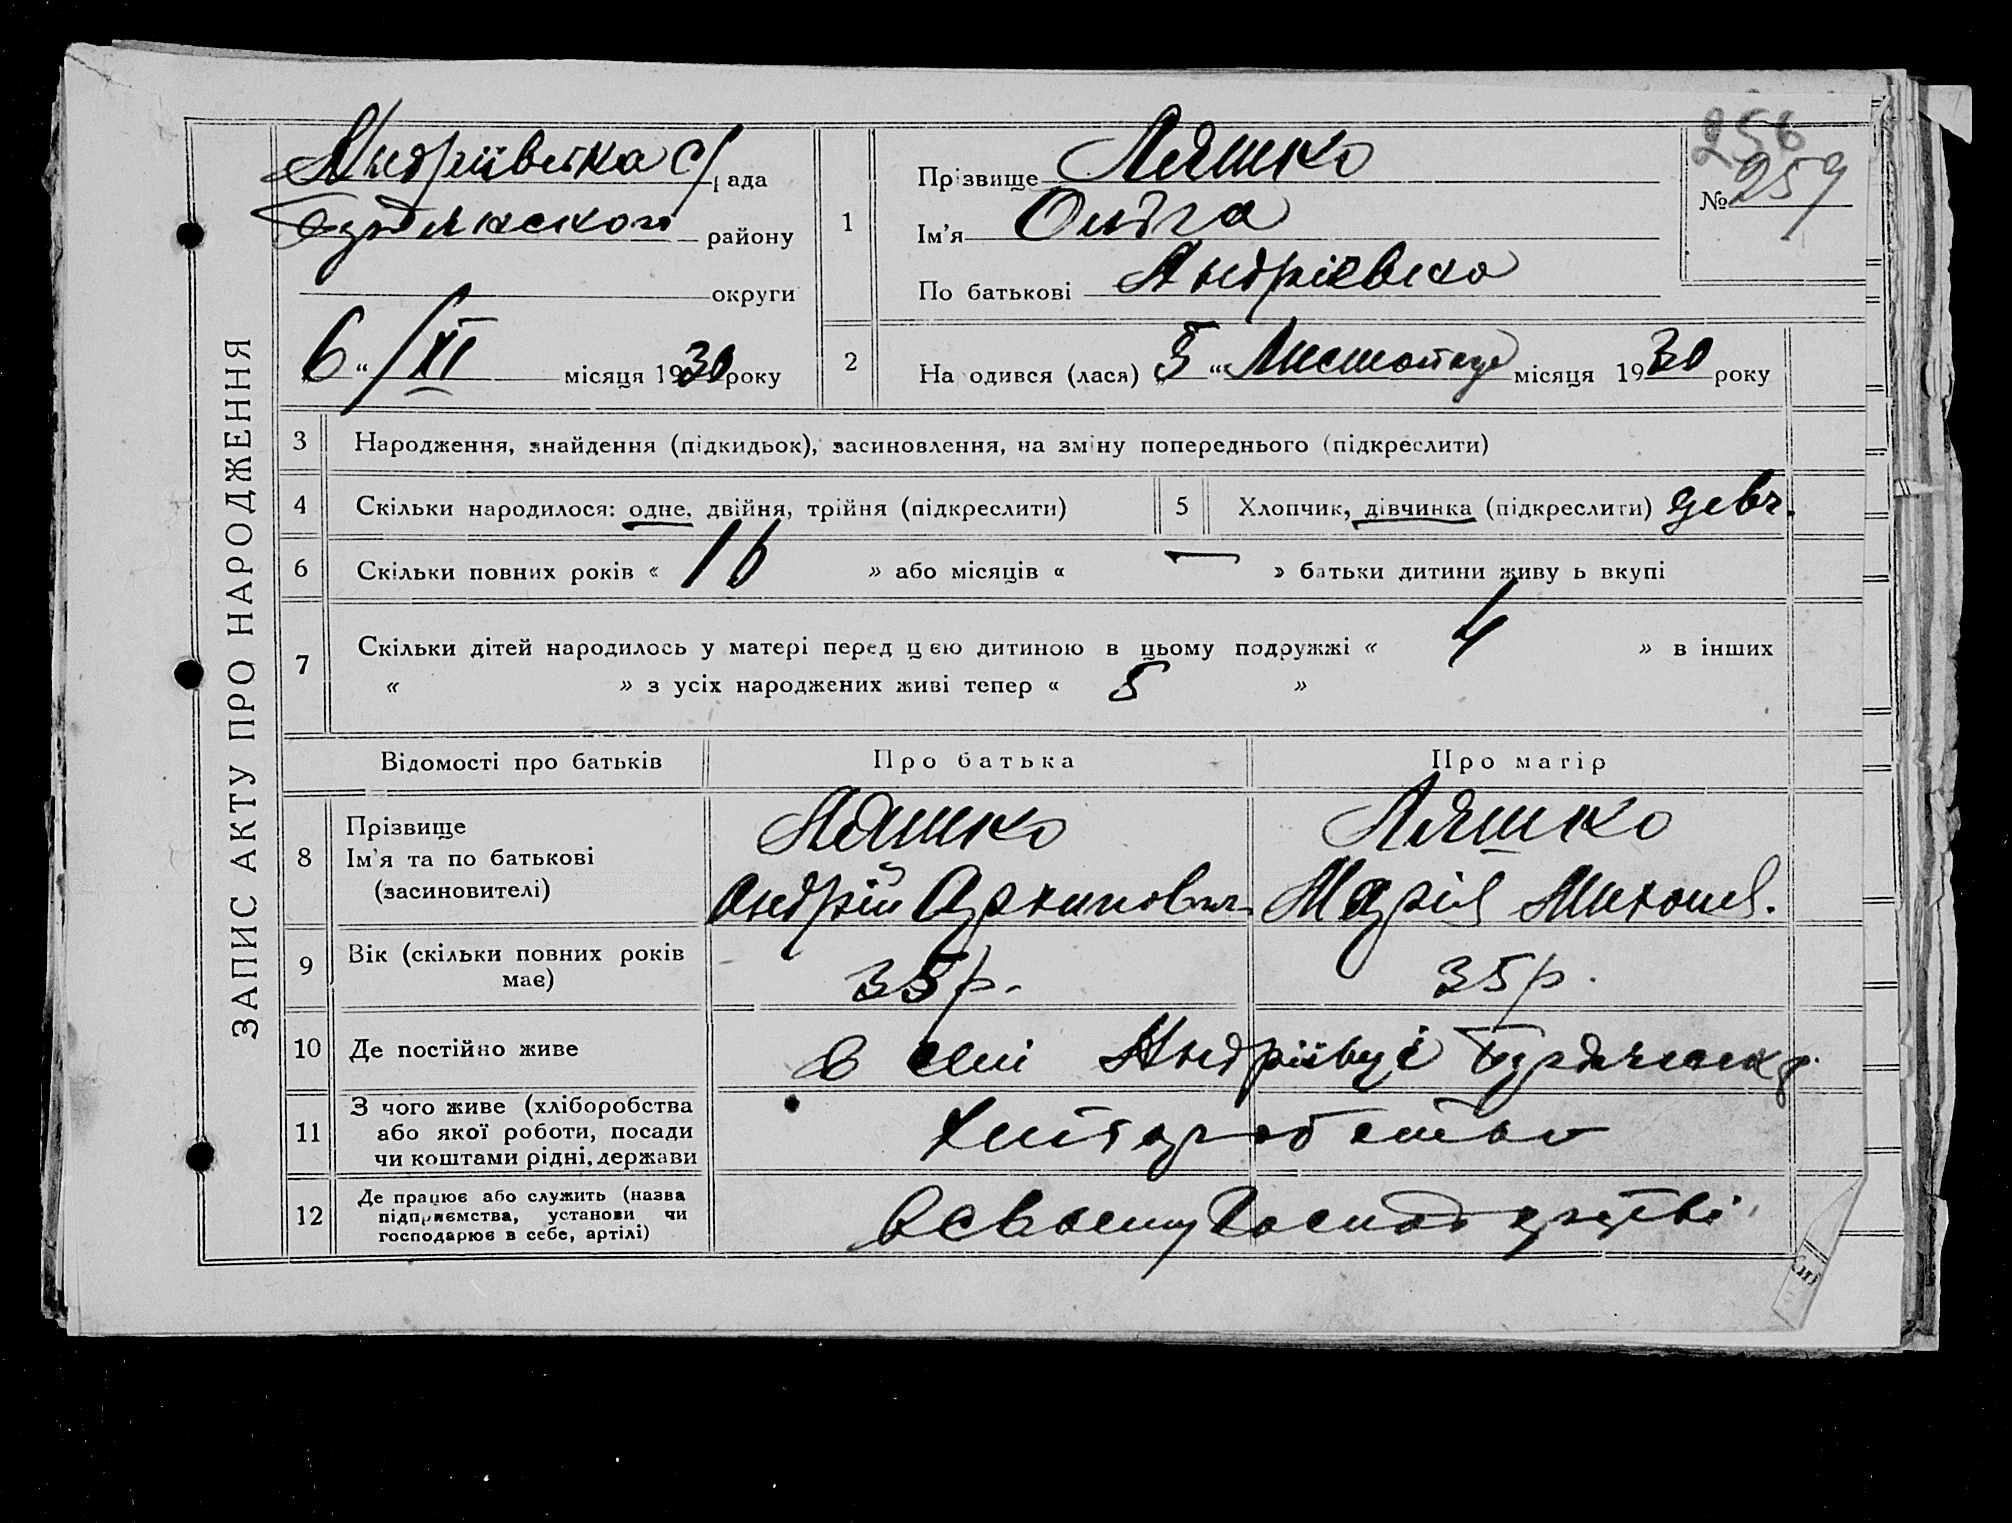 ЗАПИС АКТУ ПРО НАРОДЖЕННЯ
Андріївська с/рада
району
округи
6 “/XI місяця 1930 року
1
Прізвище Ляшко
Ім'я Ольга
По батькові Андріевна
256
№ 259
2
На одився (лася) 5 “ Листопаду місяця 1930 року
3 Народження, знайдення (підкидьок), засиновлення, на зміну попереднього (підкреслити)
4 Скільки народилося: одне, двійня, трійня (підкреслити)
5 Хлопчик, дівчинка (підкреслити) девч.
6 Скільки повних років « 16 » або місяців « — » батьки дитини живу ь вкупі
7 Скільки дітей народилось у матері перед цією дитиною в цьому подружжі « 4 » в інших
« » з усіх народжених живі тепер « 5 »
Відомості про батьків Про батька Про матір
8 Прізвище
Ім'я та по батькові
(засиновителі)
Ляшко
Андрій Архипович
Ляшко
Марія
9 Вік (скільки повних років
має)
35 р. 35 р.
10 Де постійно живе
в селі Андріївці
11 З чого живе (хліборобства
або якої роботи, посади
чи коштами рідні, держави
Хліборобство
12 Де працює або служить (назва
підприємства, установи чи
господарює в себе, артілі)
в своему господарстві